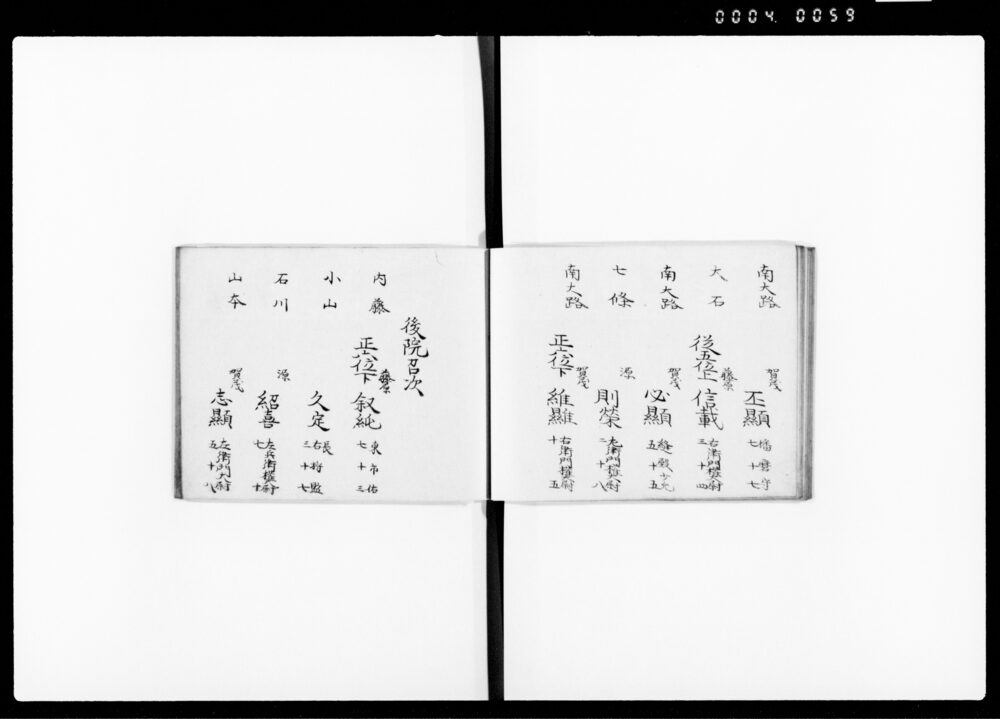 0004 0059
南大路 賀茂 丕顯 播磨守 七十七
大石 従五位上 藤原 信載 右衛門権大尉 三十四
南大路 賀茂 必顯 縫殿少允 五十五
七條 源 則榮 左衛門権大尉 二十八
南大路 正六位下 賀茂 維顯 右衛門権大尉 十五
後院召次
内藤 正六位下 藤原 叙純 東市佑 七十三
小山 久定 右将監 三十七
石川 源 紹喜 左兵衛権大尉 七十
山本 賀茂 志顯 左衛門大尉 五十八